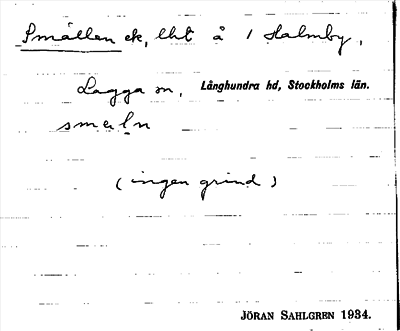 Smällen ck, lht å 1 Halmby,
Lagga sn, Långhundra hd, Stockholms län.
smęln
(ingen grind)
JÖRAN SAHLGREN 1934.